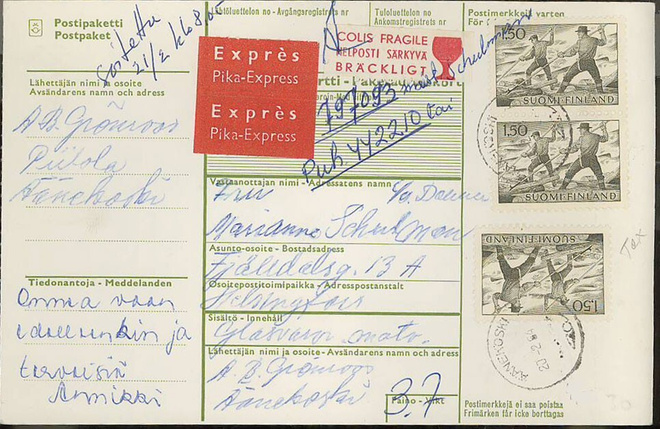 Postipaketti
Postpaket
Soitettu
21/2 klo 8.00
Lähettöluettelon no - Avgångsregistrets nr
Tuloluettelon no
Ankomstregistrets nr
Postimerkkejä varten
COLIS FRAGILE
HELPOSTI SÄRKYVÄ
BRÄCKLIGT
Exprès
Pika-Express
Exprès
Pika-Express
797093 Schulman
Puh 442210 tai
Lähettäjän nimi ja osoite
Avsändarens namn och adress
A.B. Grönroos
Äänekoski
Vastaanottajan nimi - Adressatens namn
Fru
Marianne Schulman
Asunto-osoite - Bostadsadress
Fjälldalsg. 13 A
Osoitepostitoimipaikka - Adresspostanstalt
Helsingfors
Sisältö - Innehåll
Glasvaror
Lähettäjän nimi ja osoite - Avsändarens namn och adress
A. B. Grönroos
Äänekoski
Paino - Vikt
3.7
Tiedonantoja - Meddelanden
Onnea vaan
edelleenkin ja
terveisiä
Annikki
1.50
SUOMI-FINLAND
1.50
SUOMI-FINLAND
1.50
SUOMI-FINLAND
ÄÄNEKOSKI
Tax
Postimerkkejä ei saa poistaa
Frimärken får icke borttagas